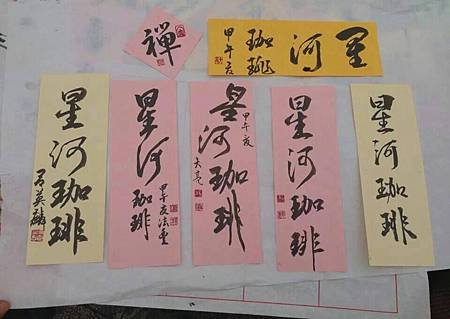 禪
星河珈琲
甲午夏
星河珈琲
呂英麟
星河珈琲
甲午夏法
星河珈琲
甲午夏
星河珈琲
星河珈琲